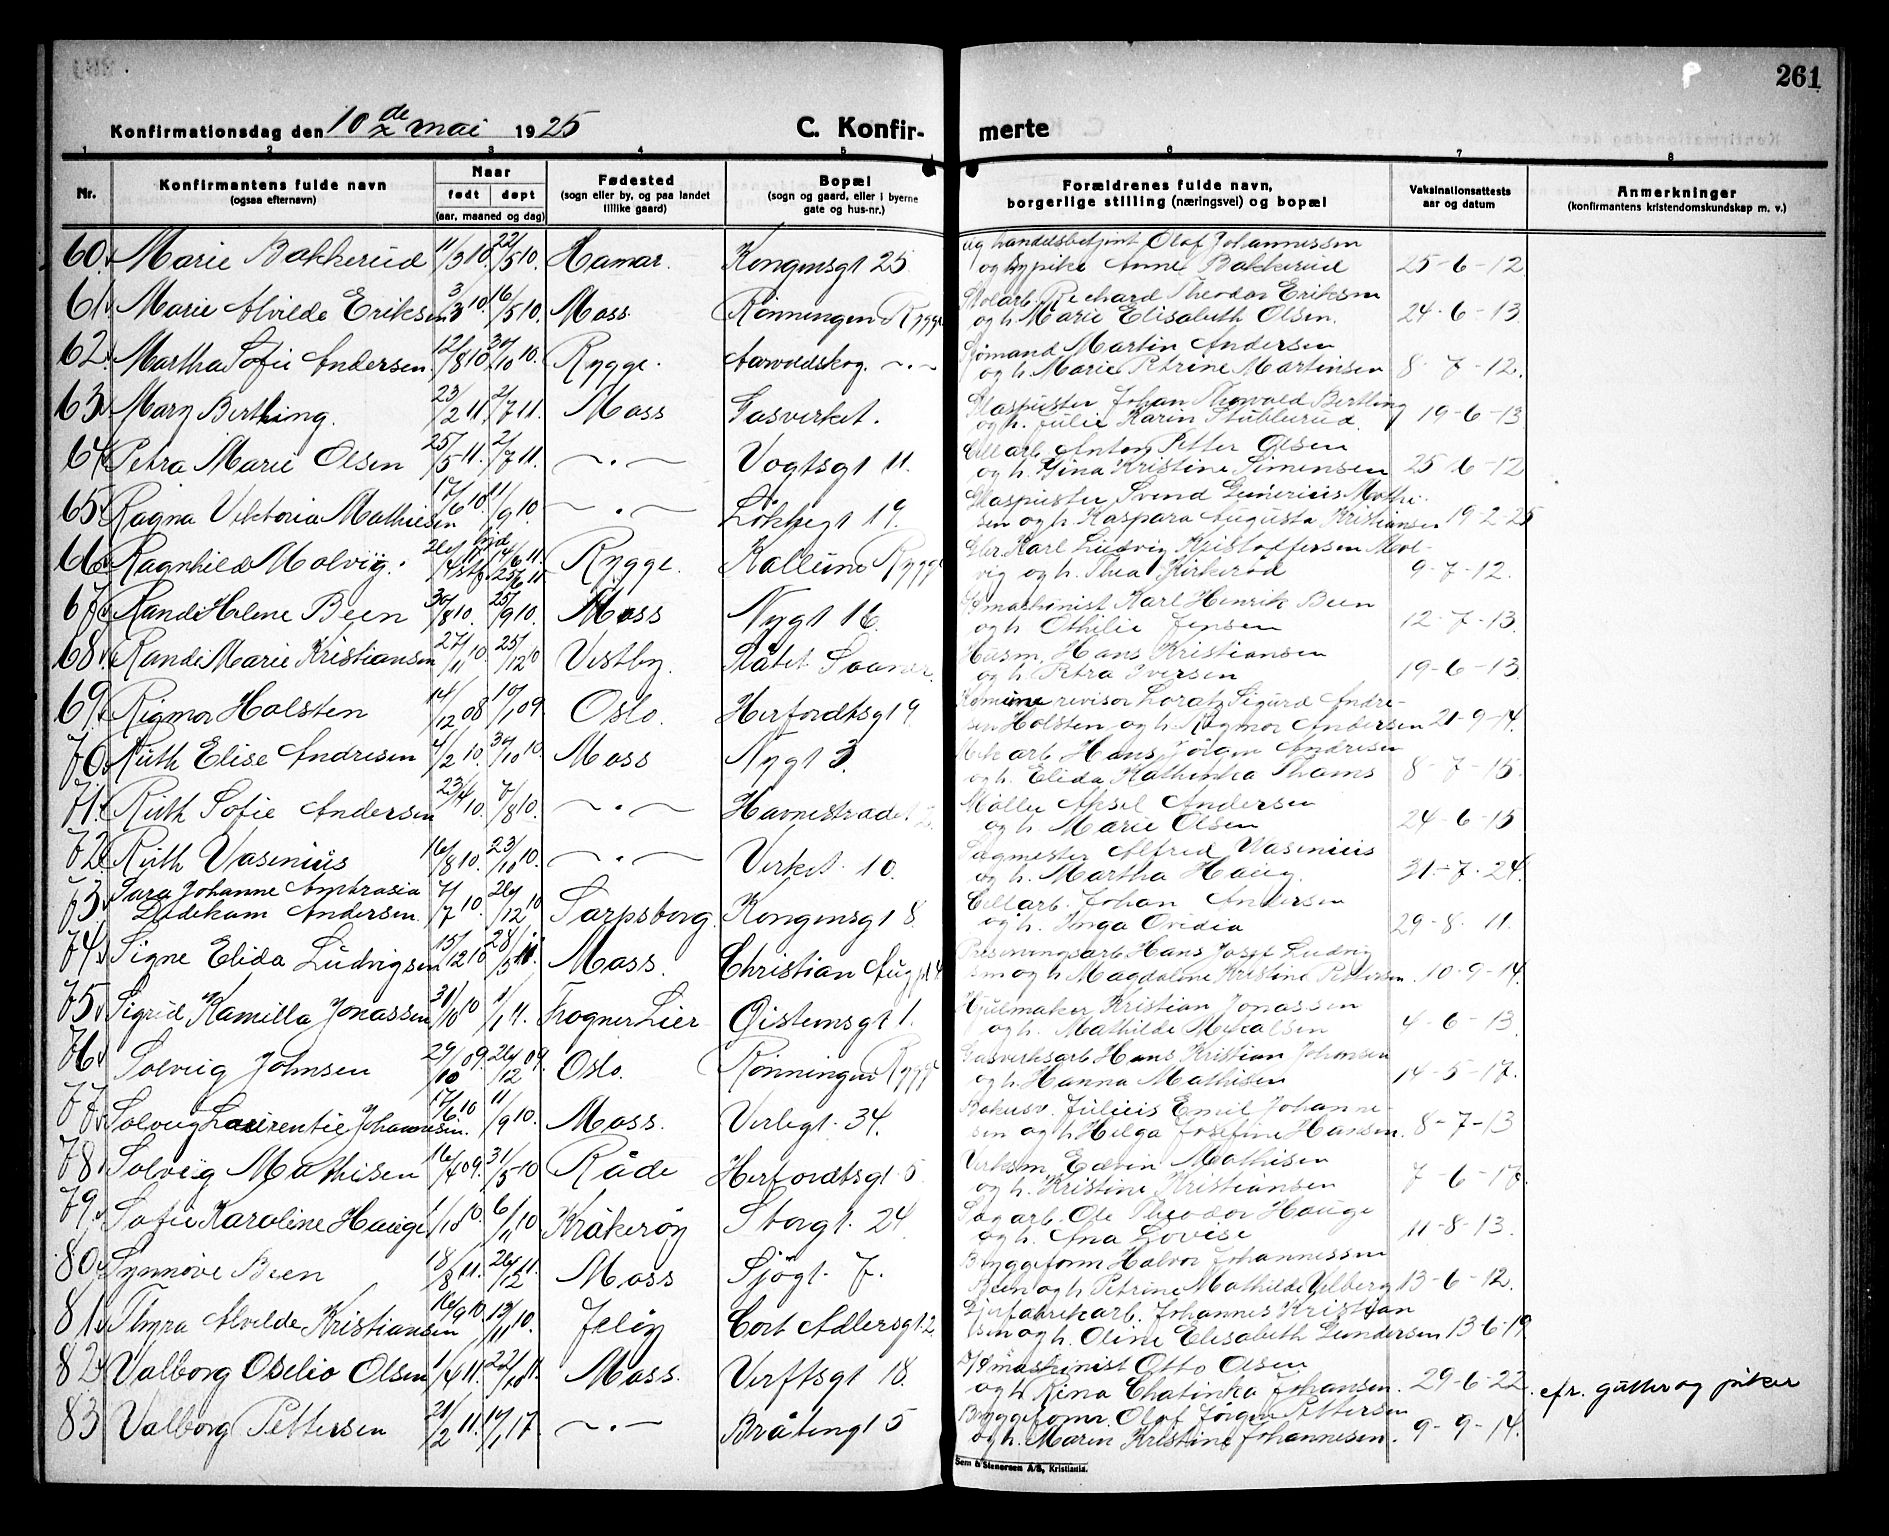 261
Konfirmationsdag den 10de mai 1925 C. Konfir- merte
1 2 3 4 5 6 7 8
Nr. Konfirmantens fulde navn (ogsaa efternavn) Naar født døpt (aar, maaned og dag) Fødested (sogn eller by, og paa landet tillike gaard) Bopæl (sogn og gaard, eller i byerne gate og hus-nr.) Forældrenes fulde navn, borgerlige stilling (næringsvei) og bopæl Vaksinationsattests aar og datum Anmerkninger (konfirmantens kristendomskundskap m. v.)
60 Marie Bakkerud 11/3 10. 22/5 10. Hamar. Kongensgt 25 ug handelsbetjent Olaf Johannessen
og pike Anne Bakkerud 25-6-12
61 Marie Alvilde Eriksen 3/3 10. 16/5 10. Moss Rønningen Rygge Richard Theodor Eriksen
og h. Marie Elisabeth Olsen. 24-6-13
62 Martha Sofie Andersen 12/8 10 30/10 10. Rygge. Aarvoldskog. -"- Sjømand Martin Andersen
og h. Marie Petrine Martinsen 8-7-12.
63 Mary Berthing. 23/2 11. 2/7 11. Moss Gasverket. Glaspuster Johan Thorvald Berthing
og h. Julie Karin Stubberud. 19-6-13
64 Petra Marie Olsen 25/5 11. 2/7 11. -"- Vogtsgt 11. Cellarb. Anton Petter Olsen
og h. Gina Kristine Simensen 25-6-12
65 Ragna Viktoria Mathiesen 17/6 10. 11/9 10. -"- Løkkegt 19. Glaspuster Svend Gunerius Mathi-
sen og h. Kaspara Augusta Kristiansen 19-2-25
66 Ragnhild Molvig. Rygge. Kallum Rygge Karl Ludvig Kristoffersen Mol-
vig og h. Thea Kirkerød 9-7-12.
67 Randi Helene Been 30/8 10. 25/9 10. Moss Nygt 16. maskinist Karl Henrik Been
og h. Othilie Jensen 12-7-13.
68 Randi Marie Kristiansen 27/11 10. 25/12 10 Vestby. Husm. Hans Kristiansen
og h. Petra Iversen 19-6-13
69 Rigmor Holsten 14/12 08 10/1 09 Oslo. Herfordtsgt 9 Komune revisor Sigurd Andre-
sen Holsten og h. Ragmor Andersen 21-9-14.
70 Ruth Elise Andresen 4/2 10. 30/10 10. Moss Nygt 3. arb. Hans Jörgen Andresen
og h. Elida Kathinka Thams 8-7-15.
71 Ruth Sofie Andersen 23/4 10. 7/8 10. -"- Havnestrædet Møller Aksel Andersen
og h. Marie Olsen 24-6-15
72 Ruth Vasenius 16/8 10. 23/10 10. -"- Verket 10. Sagmester Alfred Wasenius
og h. Martha Haug. 31-7-24.
73 Sara Johanne Ambrosia
Dedekam Andersen. 7/7 10. 26/12 10 Sarpsborg. Kongensgt 8. Cellarb. Johan Andersen
og h. Inga Ovidia 29-8-11.
74 Signe Elida Ludvigsen 15/12 10 28/5 11. Moss. Christian Aug gt 4 Hans Josef Ludvig
sen og h. Magdalene Kristine Pettersen. 10-9-14.
75 Sigrid Kamilla Jonassen 31/10 10 1/1 11. Frogner Lier Øistensgt 1. Hjulmaker Kristian Jonassen
og h. Mathilde Mikalsen 4-6-13.
76 Solveig Johnsen 29/10 09. 26/12 09. Oslo. Rønningen Rygge Gasverksarb. Hans Kristian Johnsen
og h. Hanna Mathisen 14-5-17.
77 Solveig Laurentie Johannesen. 17/6 10 11/9 10. Moss. Verlegt. 34. Julius Emil Johanne-
sen og h. Helga Josefine Hansen. 8-7-13
78 Solveig Mathisen 16/4 09. 31/5 10 Råde Herfordtsgt 5 Verksm. Edvin Mathisen
og h. Kristine Kristiansen 7-6-18.
79 Sofie Karoline Hauge 1/10 10. 6/11 10 Kråkerøy Storgt. 24. Sagarb. Ole Theodor Hauge
og h. Ana Lovise 11-8-13.
80 Synnøve Been 18/8 11. 26/12 11. Moss Sjøgt. 7. Byggeform Halvor Johannessen
Been og h. Petrine Mathilde Velberg 13-6-12.
81 Thyra Alvilde Kristiansen 16/9 10. 13/11 10. Jeløy Cort Adlersgt. 2. Johannes Kristian
sen og h. Oline Elisabeth Gundersen 13-6-19
82 Valborg Oselio Olsen 1/4 11. 22/10 11. Moss. Verftsgt 18. maskinist Otto Olsen
og h. Rina Chatinka Johansen. 29-6-22. efr. gutter og piker
83 Valborg Pettersen 21/2 11. 14/1 17. -"- Bråtengt 5 Byggeform. Olof Jørgen Pettersen
og h. Maren Kristine Johannesen. 9-9-14.
Sem & Stenersen A/S, Kristiania.